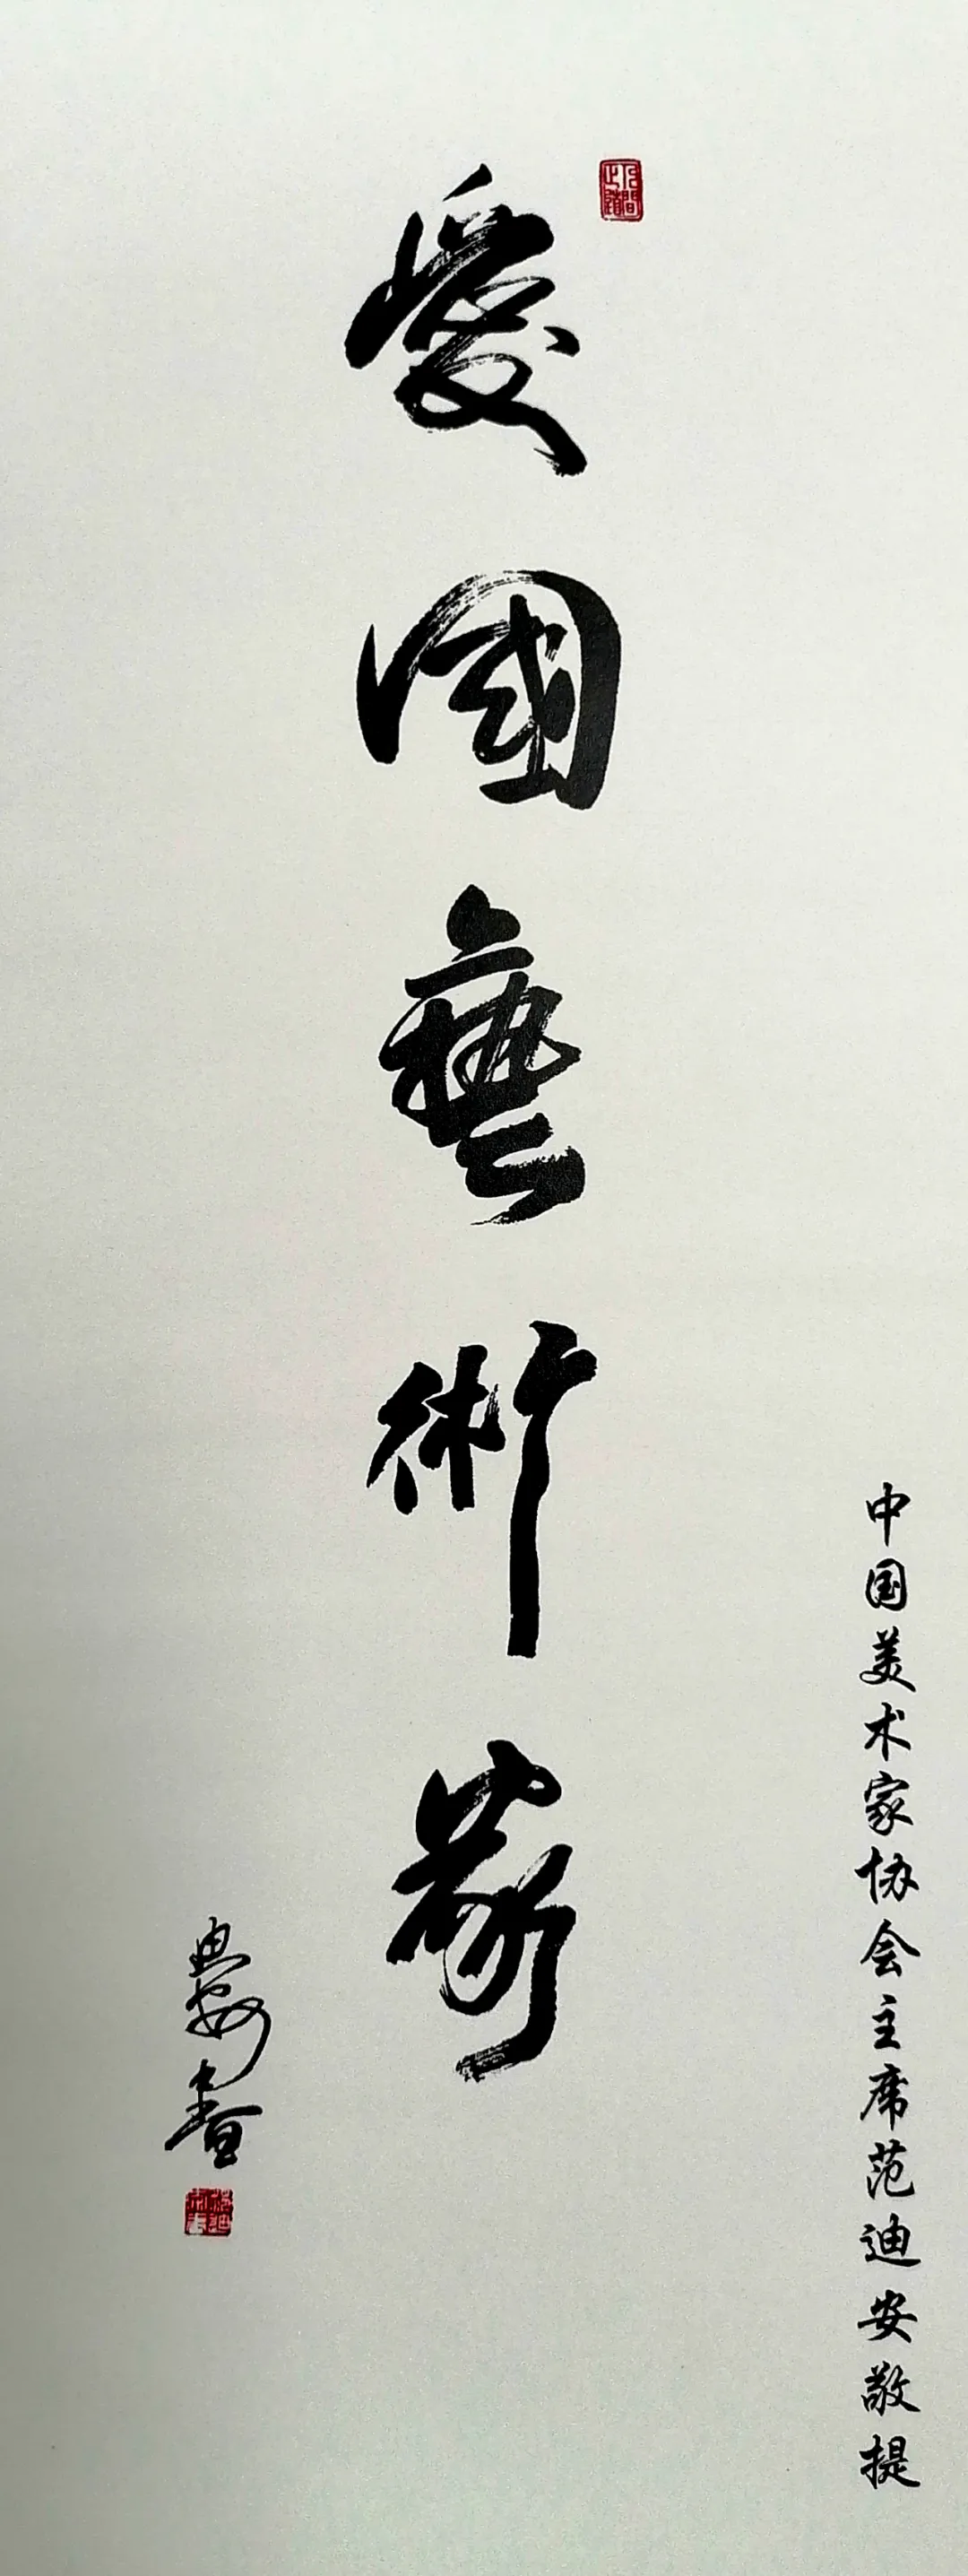 中国美术家协会主席范迪安敬提
愛國藝術家
迪安書